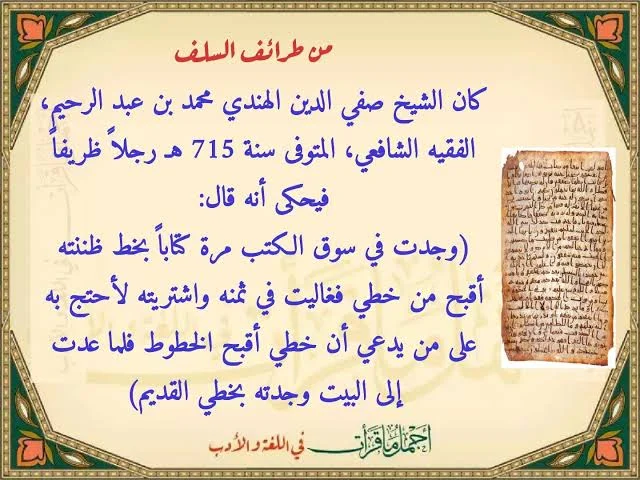 من طرائف السلف
كان الشيخ صفي الدين الهندي محمد بن عبد الرحيم،
الفقيه الشافعي، المتوفى سنة 715 هـ رجلاً ظريفاً
فيحكى أنه قال:
(وجدت في سوق الكتب مرة كتاباً بخط ظننته
أقبح من خطي فغاليت في ثمنه واشتريته لأحتج به
على من يدعي أن خطي أقبح الخطوط فلما عدت
إلى البيت وجدته بخطي القديم)
أجمل ما قرأت في اللغة والأدب